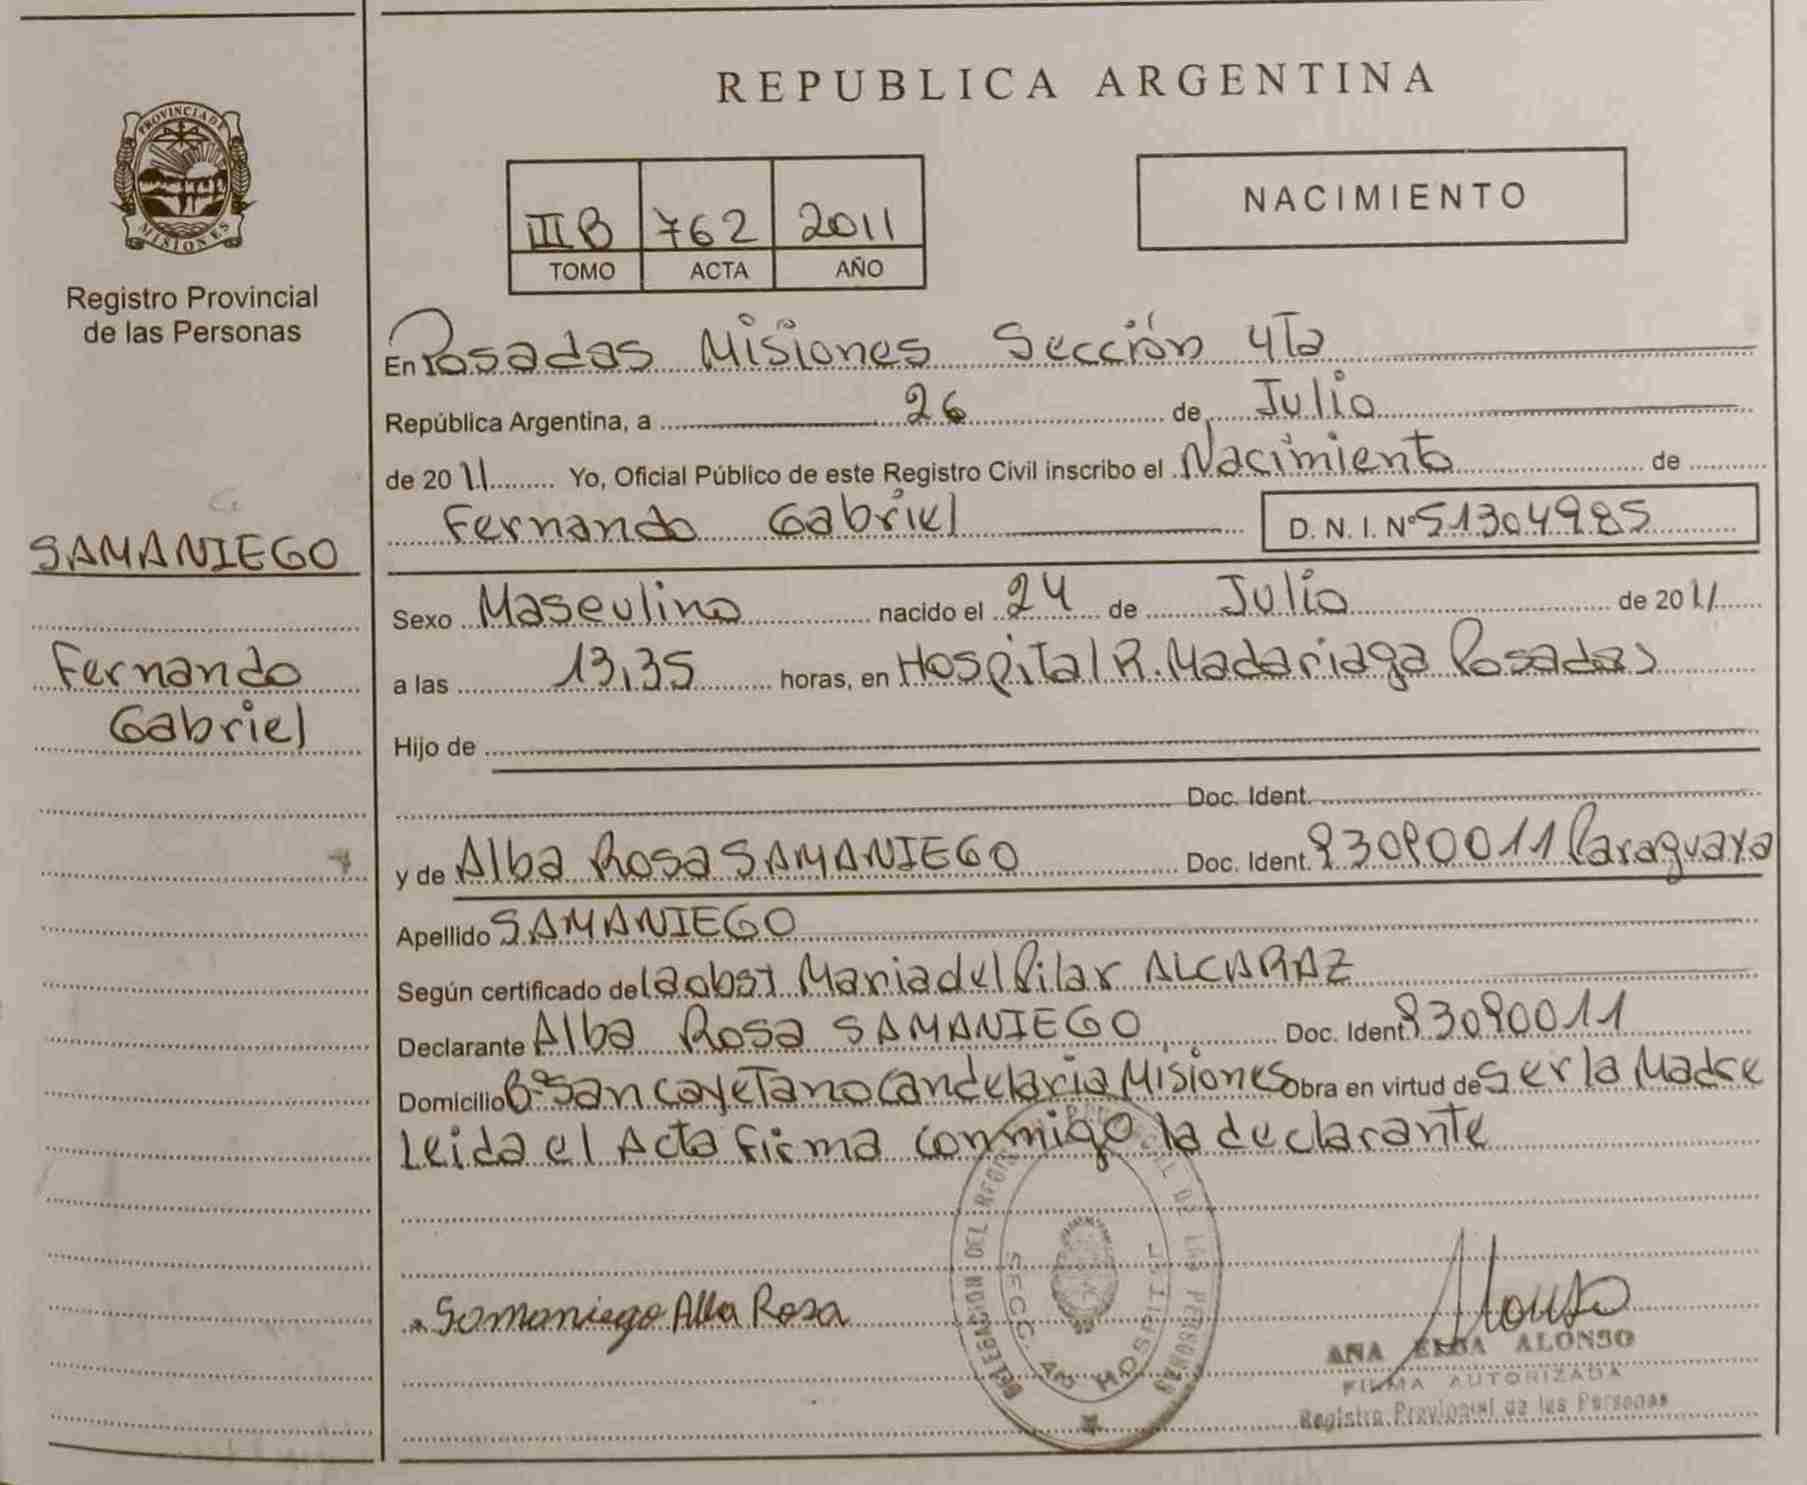 REPUBLICA ARGENTINA
PROVINCIA DE
MISIONES
Registro Provincial
de las Personas
IIIB 762 2011
TOMO ACTA AÑO
NACIMIENTO
En Posadas Misiones Sección 4Ta
República Argentina, a 26 de Julio
de 2011 Yo, Oficial Público de este Registro Civil inscribo el Nacimiento de
Fernando Gabriel D. N. I. Nº 51304985
SAMANIEGO
Fernando
Gabriel
Sexo Masculino nacido el 24 de Julio de 2011
a las 13,35 horas, en Hospital R. Madariaga Posadas
Hijo de
Doc. Ident.
y de Alba Rosa SAMANIEGO Doc. Ident. 93090011 Paraguaya
Apellido SAMANIEGO
Según certificado de la obst Maria del Pilar ALCARAZ
Declarante Alba Rosa SAMANIEGO Doc. Ident. 93090011
Domicilio Bº San Cayetano Candelaria Misiones Obra en virtud de Ser la Madre
Leida el Acta firma conmigo la declarante
DELEGACION DEL REGISTRO PROVINCIAL DE LAS PERSONAS
SECC. 4ta HOSPITAL
Samaniego Alba Rosa
Alonso
ANA ALONSO
FIRMA AUTORIZADA
Registro Provincial de las Personas